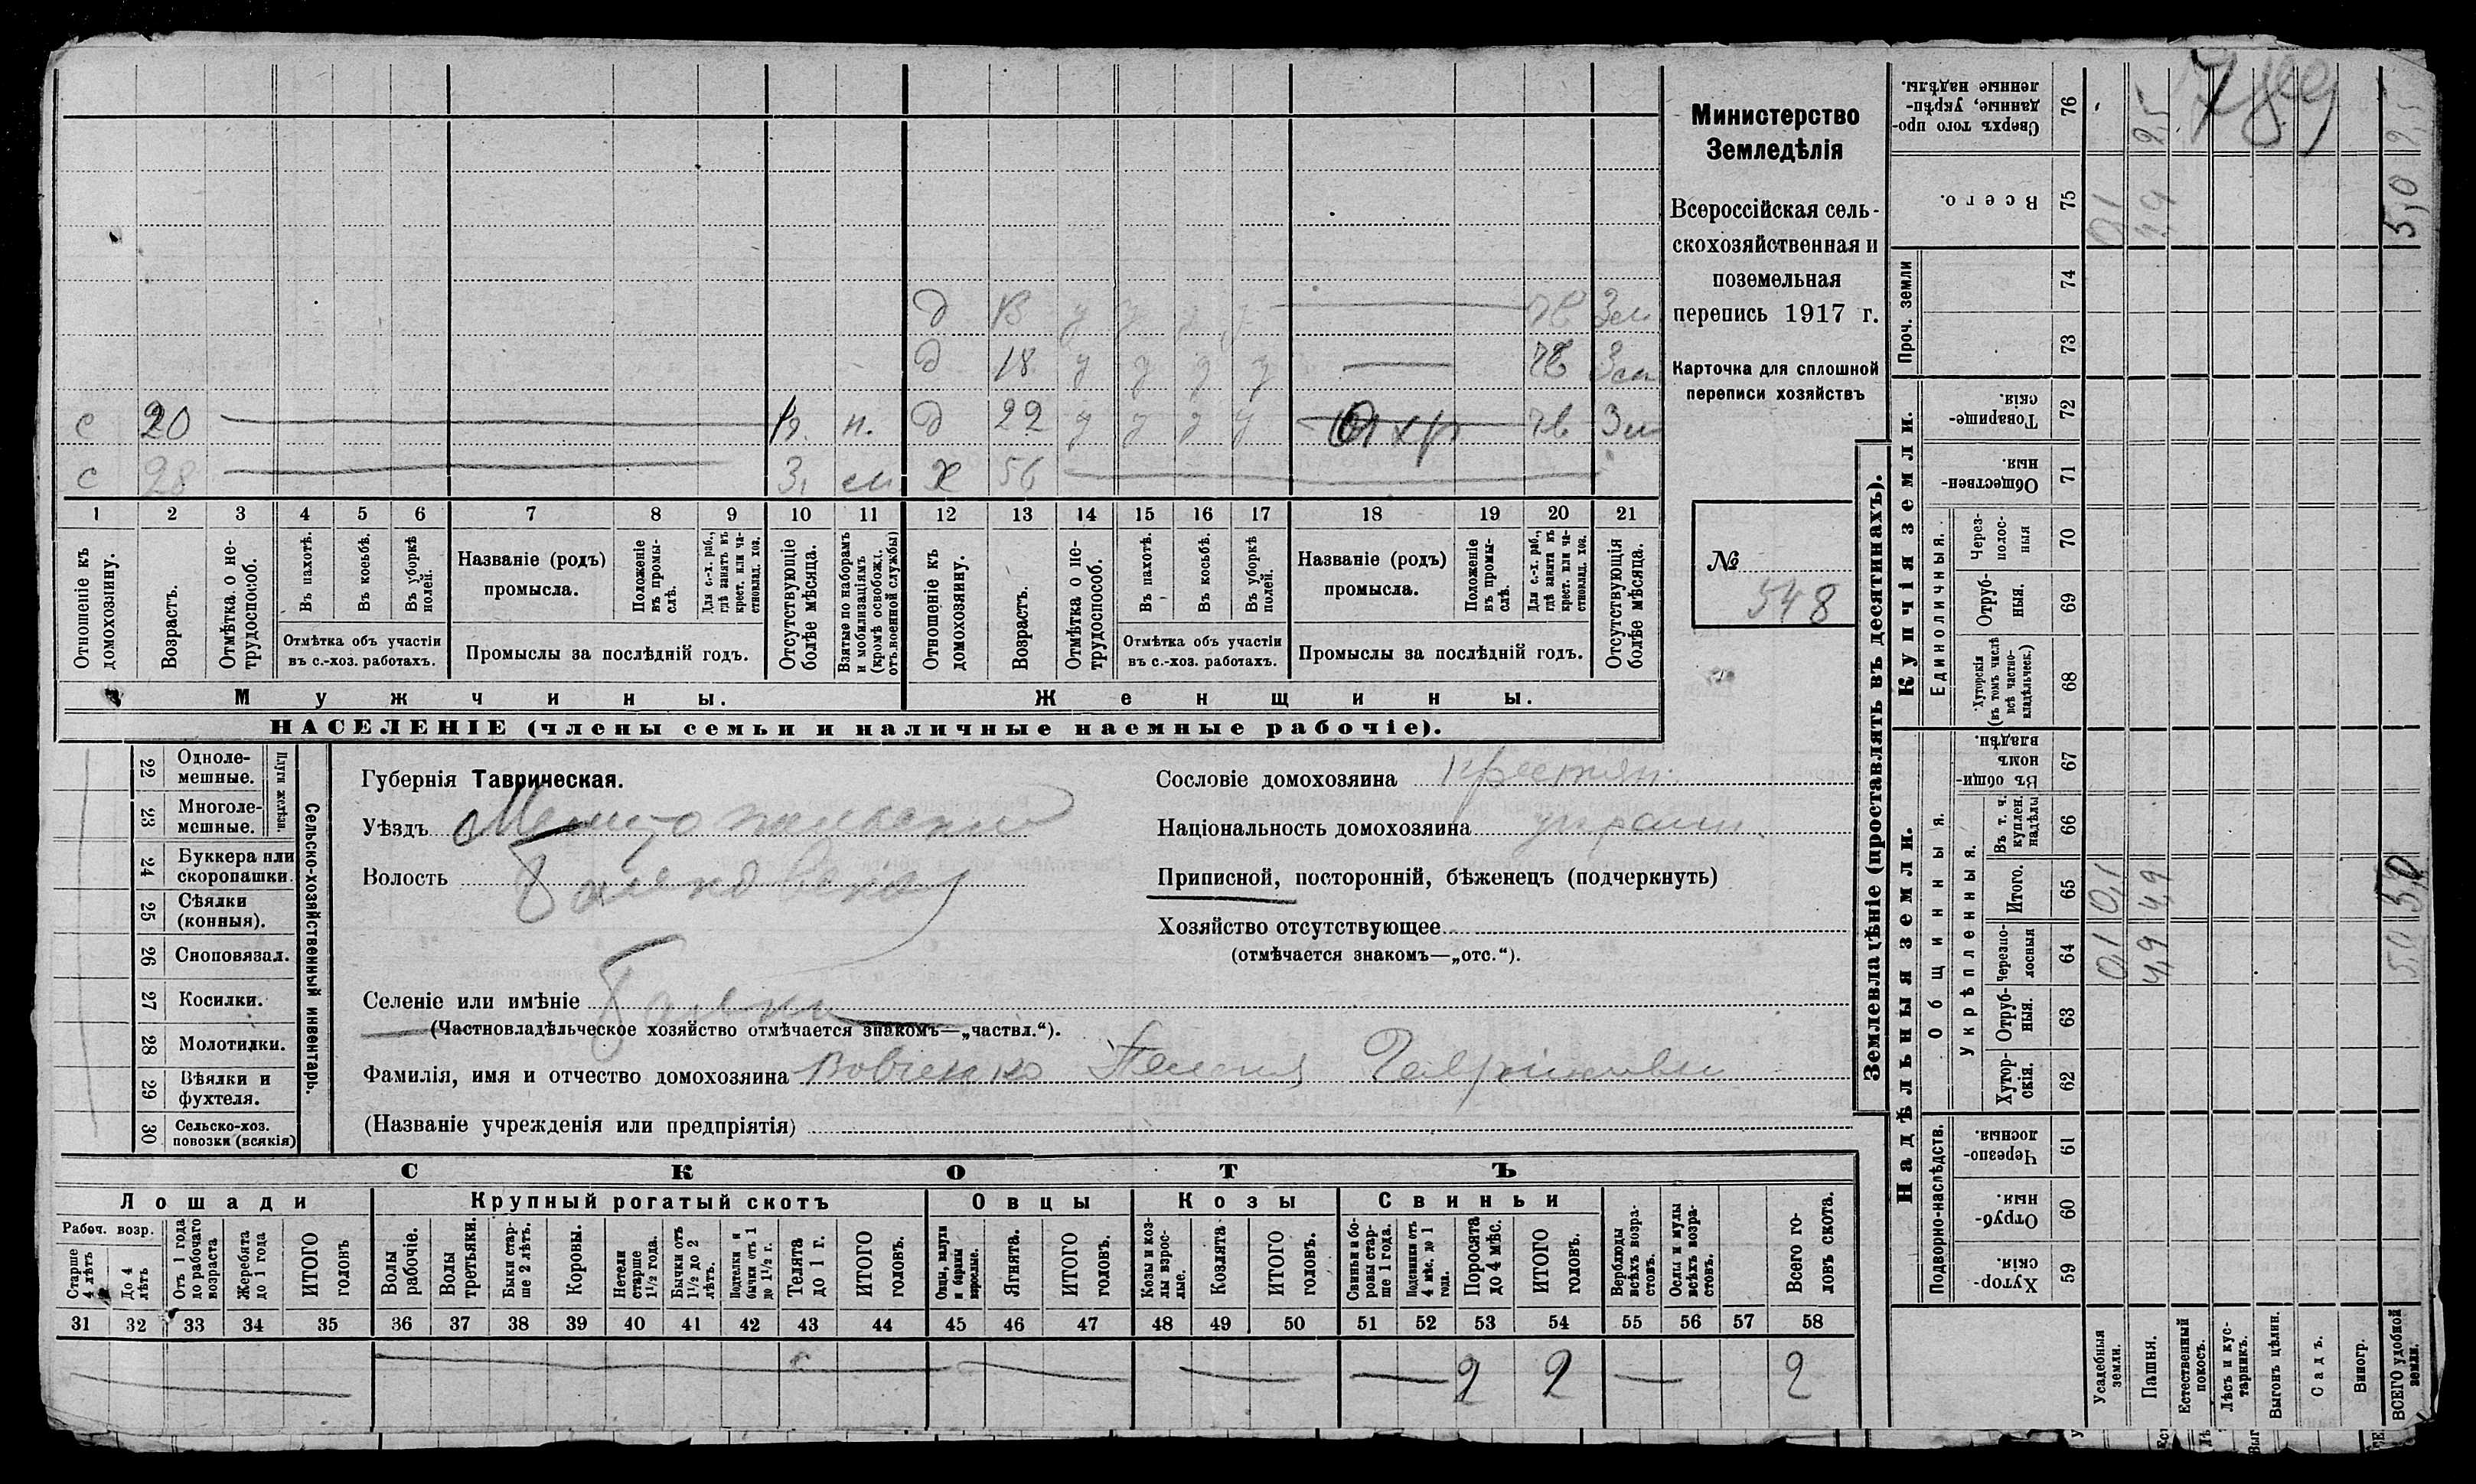 Министерство
Земледѣлія
Всероссійская сель-
скохозяйственная и
поземельная
перепись 1917 г.
Карточка для сплошной
переписи хозяйствъ
№ 548
789
д 13 у у у у — чв Зм
д 18 у у у у — чв Зм
с 20 — п. д 22 у у у у чв Зм
с 28 — 3, х 56 —
1 2 3 4 5 6 7 8 9 10 11 12 13 14 15 16 17 18 19 20 21
Отношеніе къ домохозяину.
Возрастъ.
Отмѣтка о не-трудоспособ.
Въ пахотѣ.
Въ косьбѣ.
Въ уборкѣ полей.
Отмѣтка объ участіи въ с.-хоз. работахъ.
Названіе (родъ) промысла.
Положеніе въ промы-слѣ.
Для с.-х. раб., гдѣ занятъ въ крест. или ча-стновлад. хоз.
Промыслы за послѣдній годъ.
Отсутствующіе болѣе мѣсяца.
Взятые по наборамъ и мобилизаціямъ (кромѣ освобожд. отъ военной службы)
Отношеніе къ домохозяину.
Возрастъ.
Отмѣтка о не-трудоспособ.
Въ пахотѣ.
Въ косьбѣ.
Въ уборкѣ полей.
Отмѣтка объ участіи въ с.-хоз. работахъ.
Названіе (родъ) промысла.
Положеніе въ промы-слѣ.
Для с.-х. раб., гдѣ занята въ крест. или ча-стновлад. хоз.
Промыслы за послѣдній годъ.
Отсутствующія болѣе мѣсяца.
Мужчины. Женщины.
НАСЕЛЕНІЕ (члены семьи и наличные наемные рабочіе).
Сельско-хозяйственный инвентарь.
Плуги желѣзн.
22 Одноле-мешные.
23 Многоле-мешные.
24 Буккера или скоропашки.
25 Сѣялки (конныя).
26 Сноповязал.
27 Косилки.
28 Молотилки.
29 Вѣялки и фухтеля.
30 Сельско-хоз. повозки (всякія)
Губернія Таврическая.
Уѣздъ Мелитопольскій
Волость
Селеніе или имѣніе
(Частновладѣльческое хозяйство отмѣчается знакомъ—„частвл.“).
Фамилія, имя и отчество домохозяина Вовченко Пелагія Гавриловна
(Названіе учрежденія или предпріятія)
Сословіе домохозяина крестян.
Національность домохозяина украин.
Приписной, посторонній, бѣженецъ (подчеркнуть)
Хозяйство отсутствующее
(отмѣчается знакомъ—„отс.“).
СКОТЪ
Лошади Крупный рогатый скотъ Овцы Козы Свиньи
Рабоч. возр.
Старше 4 лѣтъ
До 4 лѣтъ
Отъ 1 года до рабочаго возраста
Жеребята до 1 года
ИТОГО головъ
Волы рабочіе.
Волы третьяки.
Быки стар-ше 2 лѣтъ.
Коровы.
Нетели старше 1½ года.
Бычки отъ 1½ до 2 лѣтъ.
Подтелки и бычки отъ 1 до 1½ г.
Телята до 1 г.
ИТОГО головъ.
Овцы, валухи и бараны взрослые.
Ягнята.
ИТОГО головъ.
Козы и коз-лы взрос-лые.
Козлята
ИТОГО головъ.
Свиньи и бо-ровы стар-ше 1 года.
Подсвинки отъ 4 мѣс. до 1 года.
Поросята до 4 мѣс.
ИТОГО головъ.
Верблюды всѣхъ возра-стовъ.
Ослы и мулы всѣхъ возра-стовъ.
Всего го-ловъ скота.
31 32 33 34 35 36 37 38 39 40 41 42 43 44 45 46 47 48 49 50 51 52 53 54 55 56 57 58
— — — — — 2 2 — 2
Землевладѣніе (проставлять въ десятинахъ).
Надѣльныя земли.
Подворно-наслѣдств.
59 Хутор-скія.
60 Отруб-ныя.
61 Черезпо-лосныя.
Общинныя.
Укрѣпленныя.
62 Хутор-скія.
63 Отруб-ныя.
64 Черезпо-лосныя 0,1 4,9 5,0
65 Итого. 0,1 4,9 5,0
66 Въ т. ч. куплен. надѣлы
67 Въ общи-номъ владѣн.
Купчія земли.
Единоличныя.
68 Хуторскія (въ томъ числѣ всѣ частно-владѣльческ.)
69 Отруб-ныя.
70 Через-полос-ныя
71 Обществен-ныя.
72 Товарище-скія.
Проч. земли
73
74
75 Всего. 0,1 4,9 5,0
76 Сверхъ того про-данные, укрѣп-ленные надѣлы. 2,5 2,5
Усадебныя земли.
Пашня.
Естественный покосъ.
Лѣсъ и кус-тарникъ.
Выгонъ цѣлин.
Садъ.
Виногр.
ВСЕГО удобной земли.